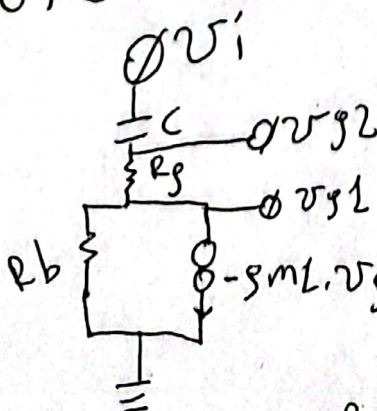 vi
C
vg2
Rg
vg1
Rb
-gm1.vg